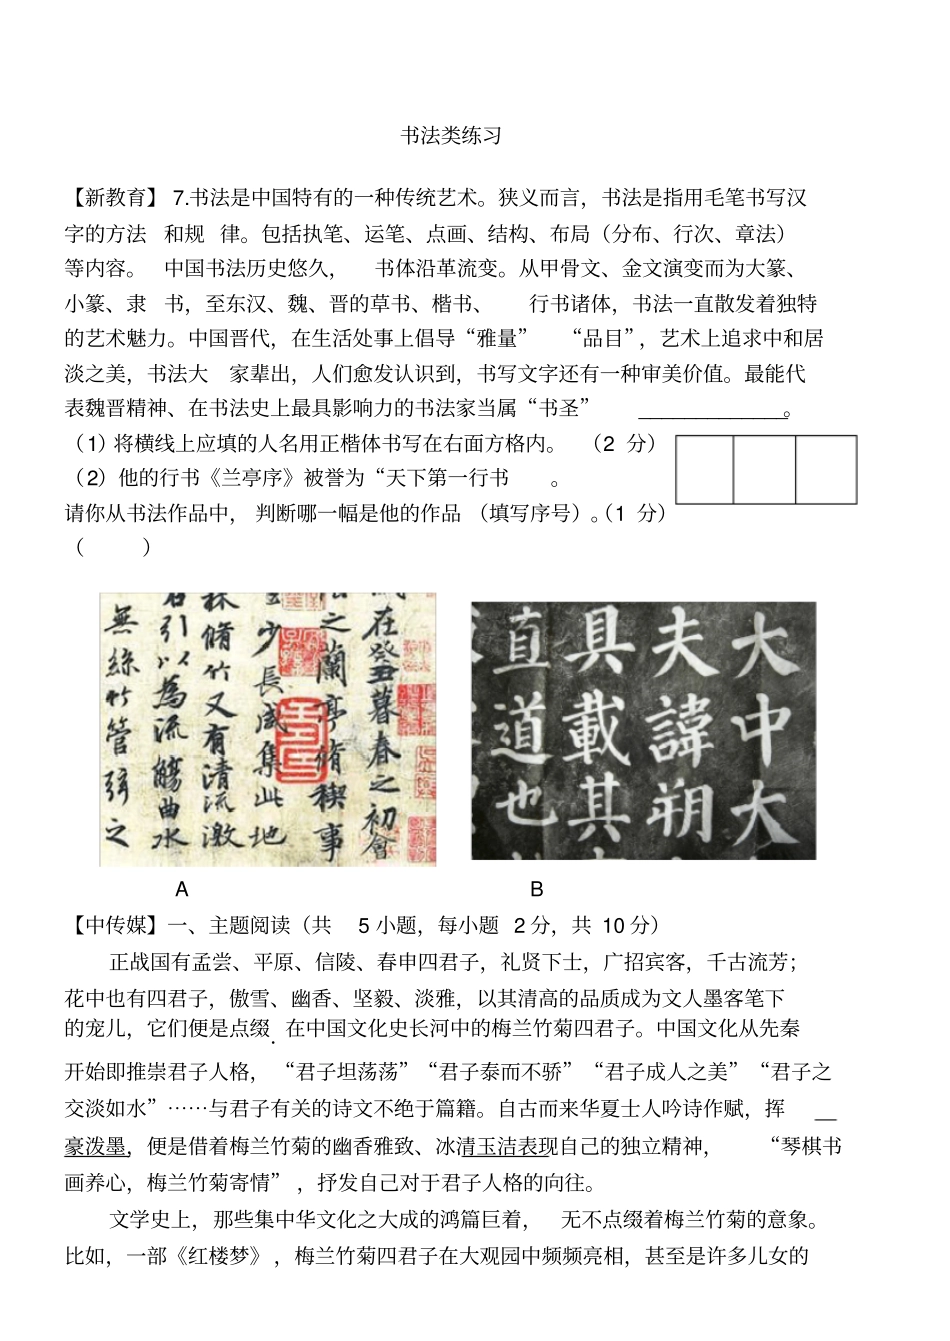 书法类练习
【新教育】 7.书法是中国特有的一种传统艺术。狭义而言，书法是指用毛笔书写汉
字的方法 和规 律。包括执笔、运笔、点画、结构、布局（分布、行次、章法）
等内容。 中国书法历史悠久， 书体沿革流变。从甲骨文、金文演变而为大篆、
小篆、隶 书，至东汉、魏、晋的草书、楷书、 行书诸体，书法一直散发着独特
的艺术魅力。中国晋代，在生活处事上倡导“雅量” “品目”，艺术上追求中和居
淡之美，书法大 家辈出，人们愈发认识到，书写文字还有一种审美价值。最能代
表魏晋精神、在书法史上最具影响力的书法家当属“书圣” ______________。
（1）将横线上应填的人名用正楷体书写在右面方格内。 （2 分）
（2）他的行书《兰亭序》被誉为“天下第一行书 。
请你从书法作品中， 判断哪一幅是他的作品 （填写序号）。（1 分）
（ ）
在癸丑暮春之初會
之蘭亭脩稧事
少長咸集此地
脩竹又有清流激
引以為流觴曲水
無絲竹管弦之
大中大
夫諱朔
具載其
直道也
A B
【中传媒】一、主题阅读（共 5 小题，每小题 2 分，共 10 分）
正战国有孟尝、平原、信陵、春申四君子，礼贤下士，广招宾客，千古流芳；
花中也有四君子，傲雪、幽香、坚毅、淡雅，以其清高的品质成为文人墨客笔下
的宠儿，它们便是点缀．在中国文化史长河中的梅兰竹菊四君子。中国文化从先秦
开始即推崇君子人格， “君子坦荡荡”“君子泰而不骄”“君子成人之美”“君子之
交淡如水”……与君子有关的诗文不绝于篇籍。自古而来华夏士人吟诗作赋，挥
豪泼墨，便是借着梅兰竹菊的幽香雅致、冰清玉洁表现自己的独立精神， “琴棋书
画养心，梅兰竹菊寄情” ，抒发自己对于君子人格的向往。
文学史上，那些集中华文化之大成的鸿篇巨着， 无不点缀着梅兰竹菊的意象。
比如，一部《红楼梦》 ，梅兰竹菊四君子在大观园中频频亮相，甚至是许多儿女的